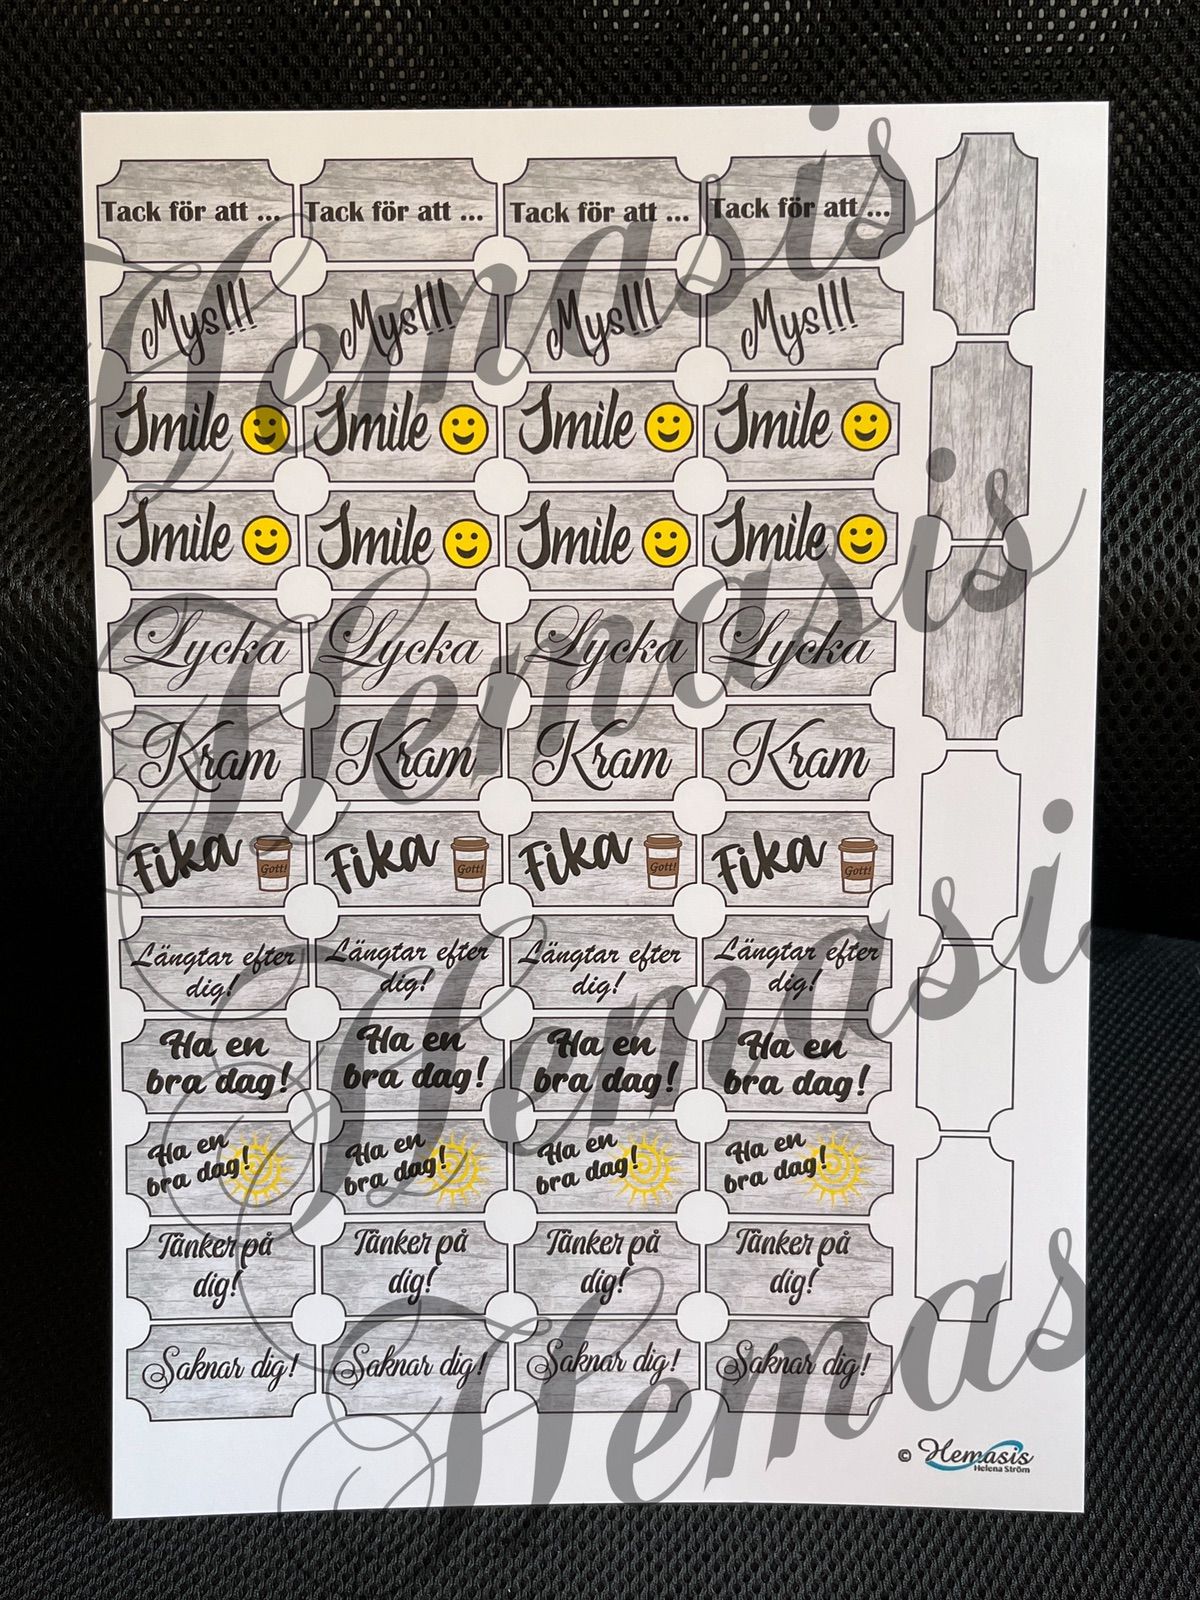 Tack för att ... Tack för att ... Tack för att ... Tack för att ...
Mys!!! Mys!!! Mys!!! Mys!!!
Smile Smile Smile Smile
Smile Smile Smile Smile
Lycka Lycka Lycka Lycka
Kram Kram Kram Kram
Fika Gott! Fika Gott! Fika Gott! Fika Gott!
Längtar efter Längtar efter Längtar efter Längtar efter
dig! dig! dig! dig!
Ha en Ha en Ha en Ha en
bra dag! bra dag! bra dag! bra dag!
Ha en Ha en Ha en Ha en
bra dag! bra dag! bra dag! bra dag!
Tänker på Tänker på Tänker på Tänker på
dig! dig! dig! dig!
Saknar dig! Saknar dig! Saknar dig! Saknar dig!
© Hemasis
Helena Ström
Hemasis
Hemasis
Hemasis
Hemas